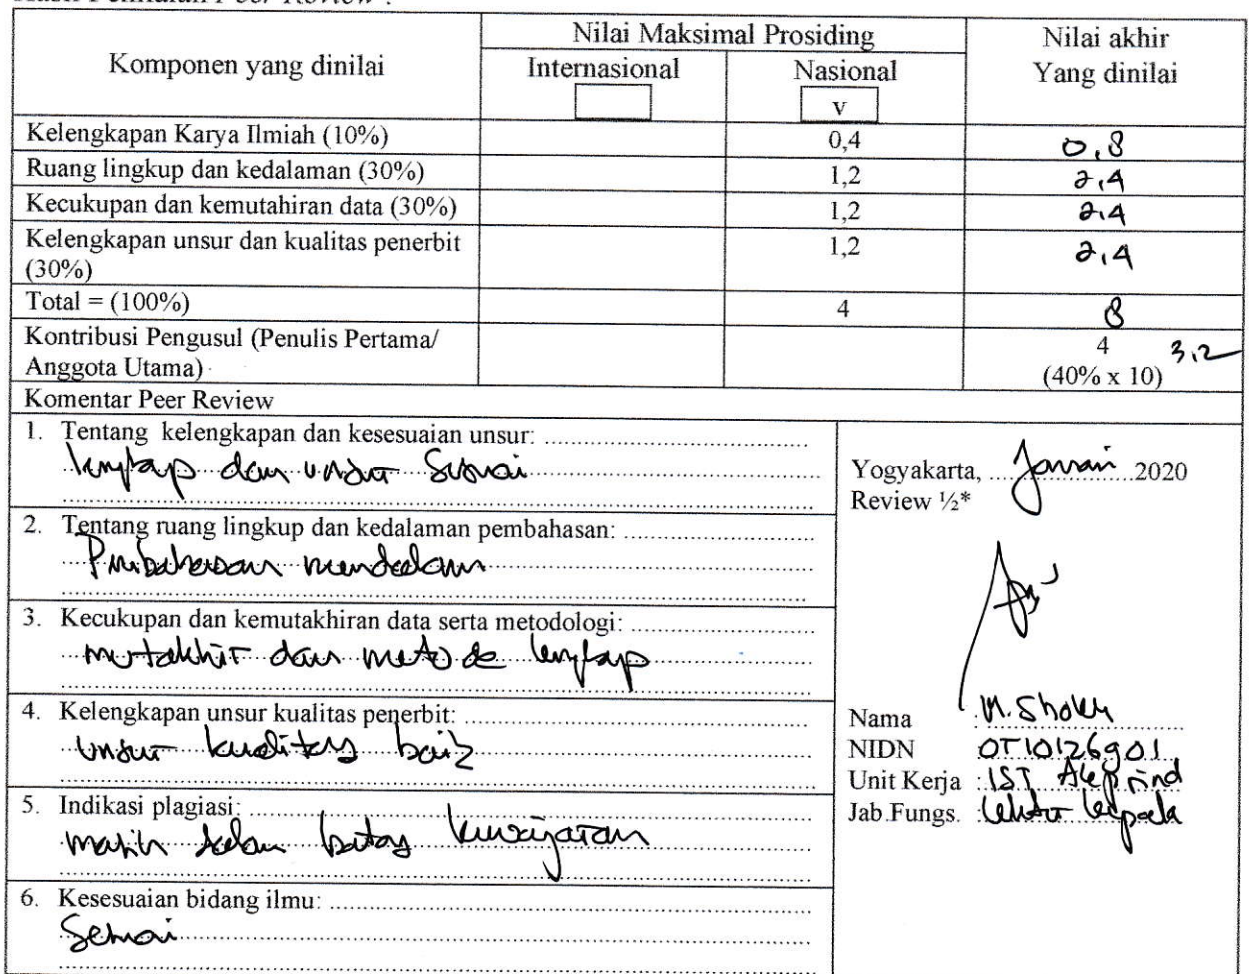 Hasil Penilaian Peer Review :
Komponen yang dinilai
Nilai Maksimal Prosiding
Nilai akhir
Yang dinilai
Internasional
Nasional
v
Kelengkapan Karya Ilmiah (10%) 0,4 0,8
Ruang lingkup dan kedalaman (30%) 1,2 2,4
Kecukupan dan kemutahiran data (30%) 1,2 2,4
Kelengkapan unsur dan kualitas penerbit
(30%) 1,2 2,4
Total = (100%) 4 8
Kontribusi Pengusul (Penulis Pertama/
Anggota Utama)
4 3,2
(40% x 10)
Komentar Peer Review
1. Tentang kelengkapan dan kesesuaian unsur:
lengkap dan unsur sesuai
2. Tentang ruang lingkup dan kedalaman pembahasan:
Pembahasan mendalam
3. Kecukupan dan kemutakhiran data serta metodologi:
mutakhir dan metode lengkap
4. Kelengkapan unsur kualitas penerbit:
unsur kualitas baik
5. Indikasi plagiasi:
masih dalam batas kewajaran
6. Kesesuaian bidang ilmu:
Sesuai
Yogyakarta, Januari 2020
Review ½*
Nama : M. Sholeh
NIDN
Unit Kerja : IST Akprind
Jab.Fungs. : Lektor Kepala